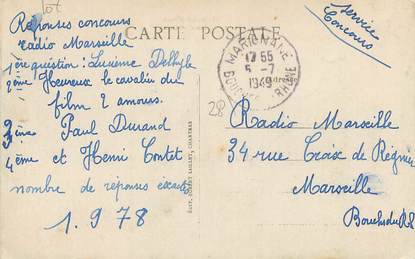 Réponses concours
radio Marseille
CARTE POSTALE
Service
Concours
1ère question : Lucienne Dellyle
2ème Heureux le cavalier du
film 2 amours.
3ème Paul Durand
4ème et Henri Contet
nombre de réponses exactes
1.978
MARIGNANE
17 55
5 -7
1949
BOUCHES RHÔNE
28
Radio Marseille
34 rue Croix de Régnier
Marseille
Bouches du Rh